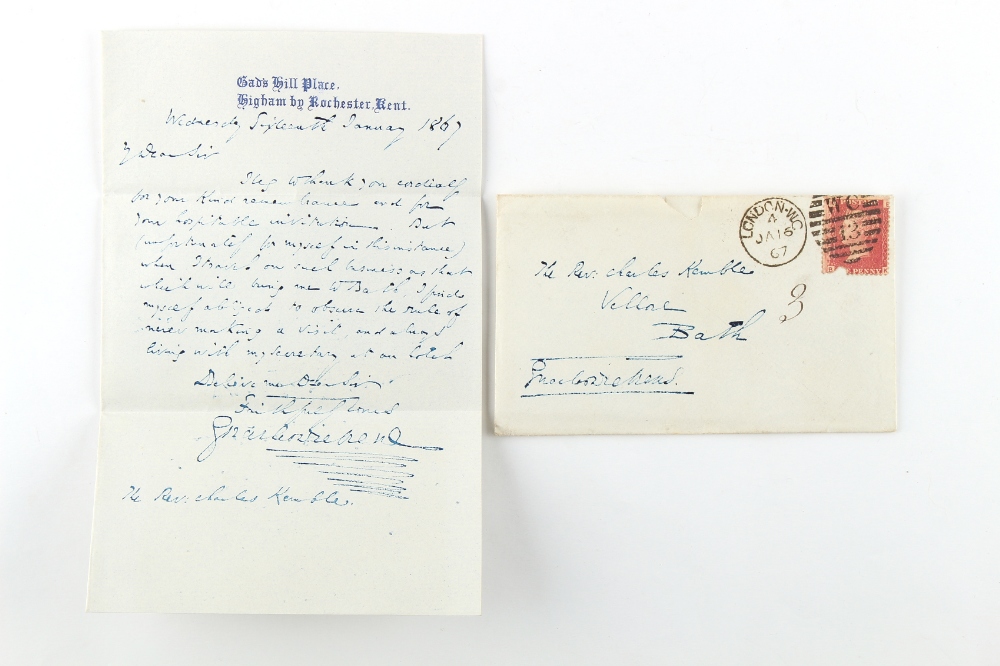 Gad's Hill Place,
Higham by Rochester, Kent.
Wednesday Sixteenth January 1867
My Dear Sir
I beg to thank you cordially
for your kind remembrance and for
your hospitable invitation. But
(unfortunately for myself in this instance)
when I travel on such business as that
which will bring me to Bath, I find
myself obliged to observe the rule of
never making a visit and always
living with my secretary at an hotel
Believe me Dear Sir
Faithfully Yours
Charles Dickens
The Rev: Charles Kemble.
LONDON·W.C
4
JA 16
67
WC
13
PENNY
The Rev: Charles Kemble
Vellore
Bath
3
Charles Dickens.